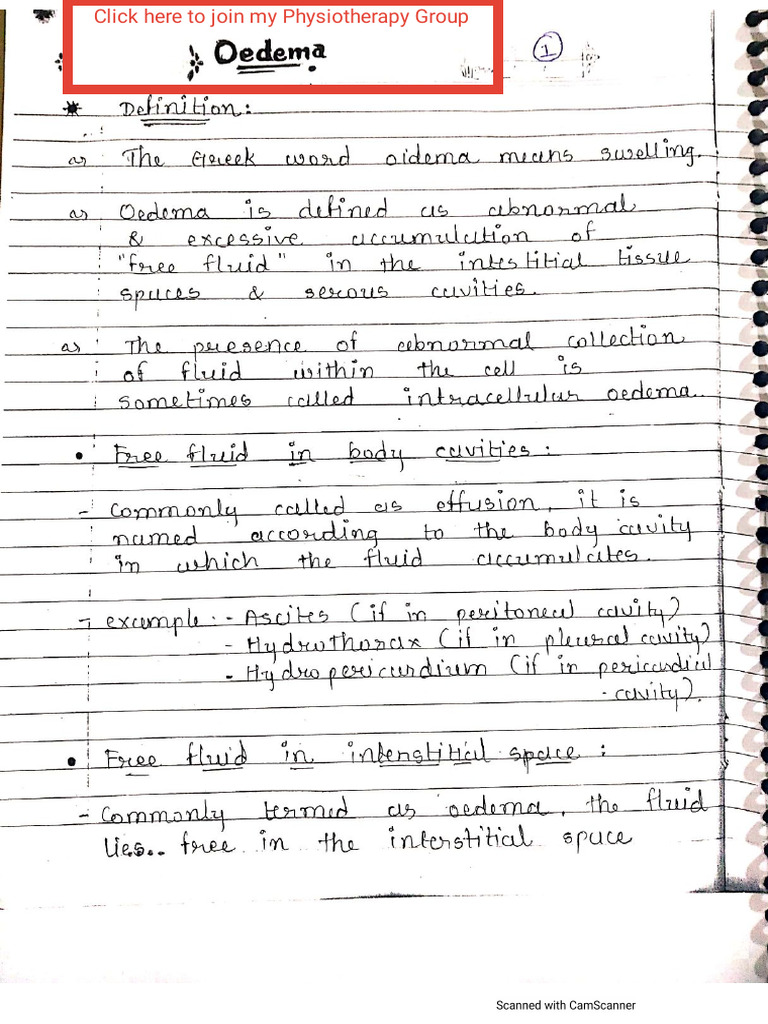 Click here to join my Physiotherapy Group
Oedema
1
* Definition:
The Greek word oidema means swelling.
Oedema is defined as abnormal
& excessive accumulation of
"free fluid" in the intestitial tissue
spaces & serous cavities.
The presence of abnormal collection
of fluid within the cell is
sometimes called intracellular oedema..
• Free fluid in body cavities:
- Commonly called as effusion, it is
named according to the body cavity
in which the fluid accumulates.
- example:- Ascites (if in peritoneal cavity)
- Hydrothorax (if in pleural cavity)
- Hydropericardium (if in pericardial
cavity).
• Free fluid in intenstitial space:
- Commonly termed as oedema, the fluid
lies.. free in the interstitial space
Scanned with CamScanner